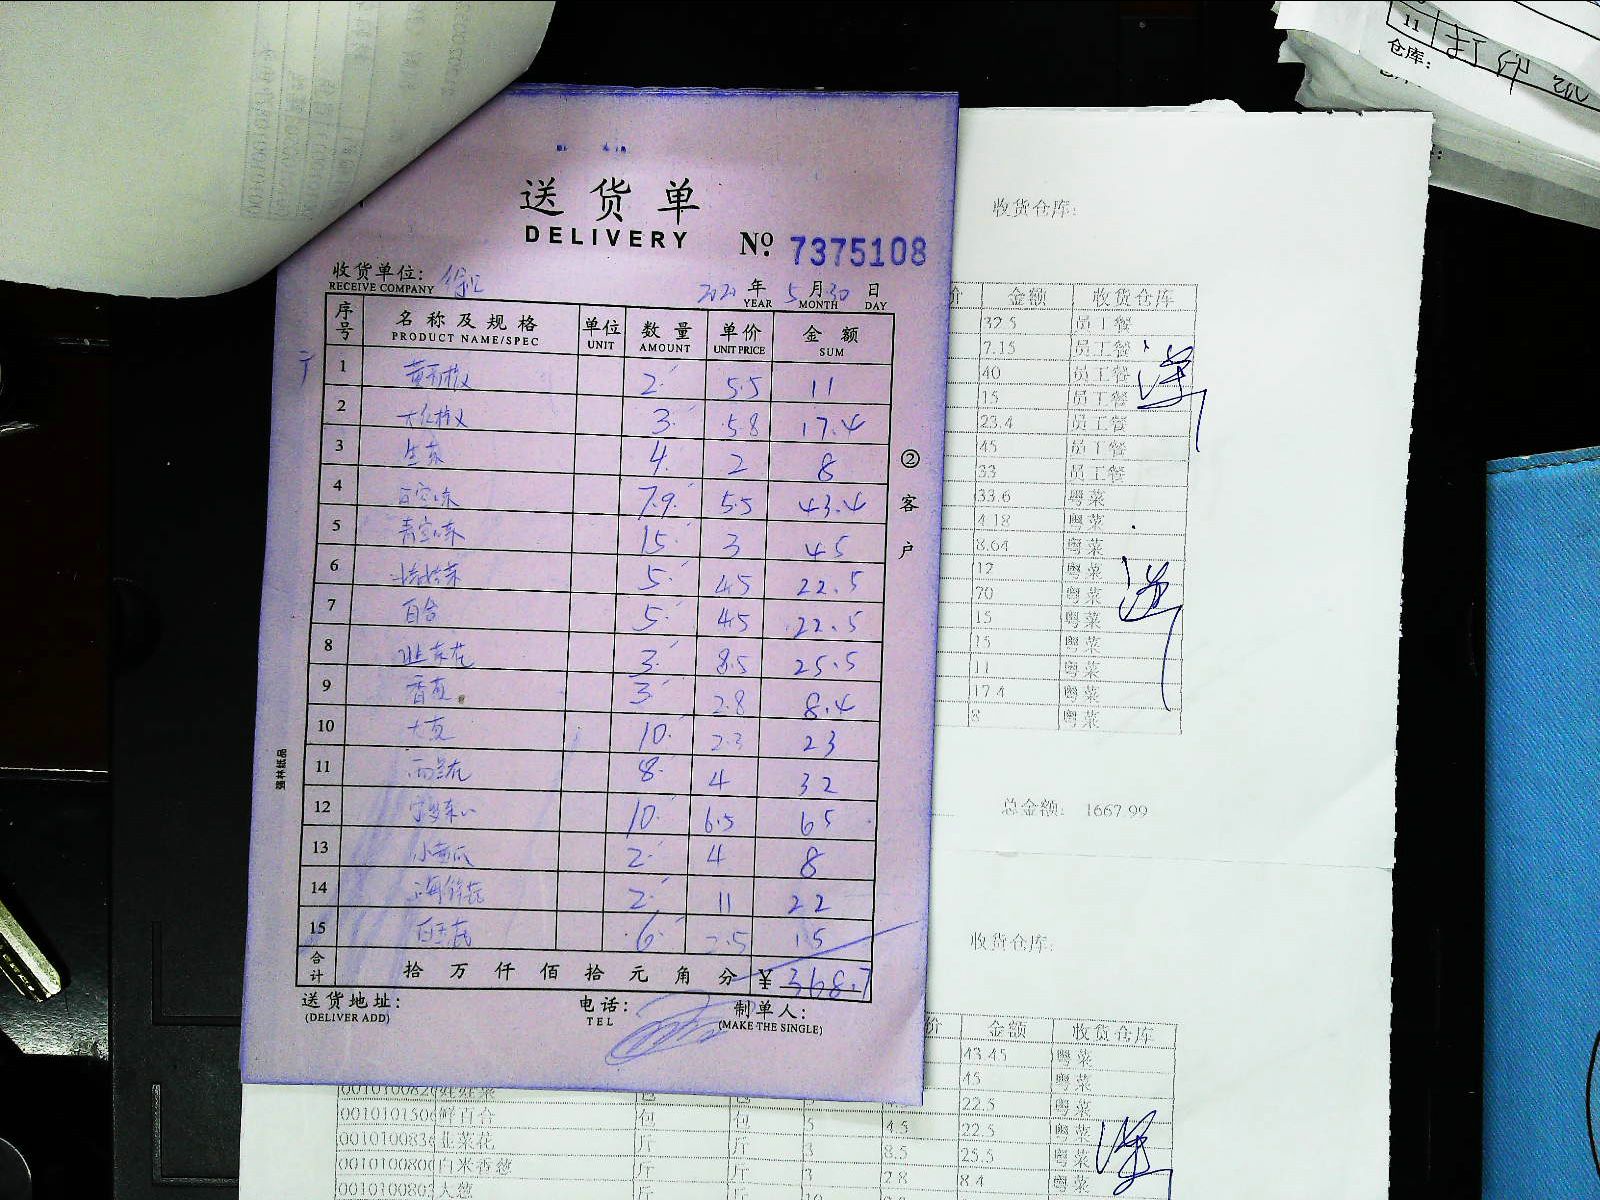 送货单
DELIVERY
No. 7375108
收货单位: 徐汇
RECEIVE COMPANY
2021 年 5 月 30 日
YEAR MONTH DAY
序号 名称及规格 单位 数量 单价 金额
PRODUCT NAME/SPEC UNIT AMOUNT UNIT PRICE SUM
1 黄元椒 2 5.5 11
2 大红椒 3 5.8 17.4
3 生菜 4 2 8
4 7.9 5.5 43.4
5 15 3 45
6 娃娃菜 5 4.5 22.5
7 百合 5 4.5 22.5
8 韭菜花 3 8.5 25.5
9 香葱 3 2.8 8.4
10 大葱 10 2.3 23
11 西兰花 8 4 32
12 10 6.5 65
13 小黄瓜 2 4 8
14 2 11 22
15 6 2.5 15
合计 拾万仟佰拾元角分 ¥ 368.7
送货地址: 电话: 制单人:
(DELIVER ADD) TEL (MAKE THE SINGLE)
②客户
收货仓库:
价 金额 收货仓库
32.5 员工餐
7.15 员工餐
40 员工餐
15 员工餐
23.4 员工餐
45 员工餐
33 员工餐
33.6 粤菜
4.18 粤菜
8.64 粤菜
12 粤菜
70 粤菜
15 粤菜
15 粤菜
11 粤菜
17.4 粤菜
8 粤菜
总金额: 1667.99
收货仓库:
价 金额 收货仓库
43.45 粤菜
45 粤菜
娃娃菜 22.5 粤菜
鲜百合 包 包 5 4.5 22.5 粤菜
韭菜花 斤 斤 3 8.5 25.5 粤菜
白米香葱 斤 斤 3 2.8 8.4 粤菜
大葱 斤 斤 10
11 打印
仓库: